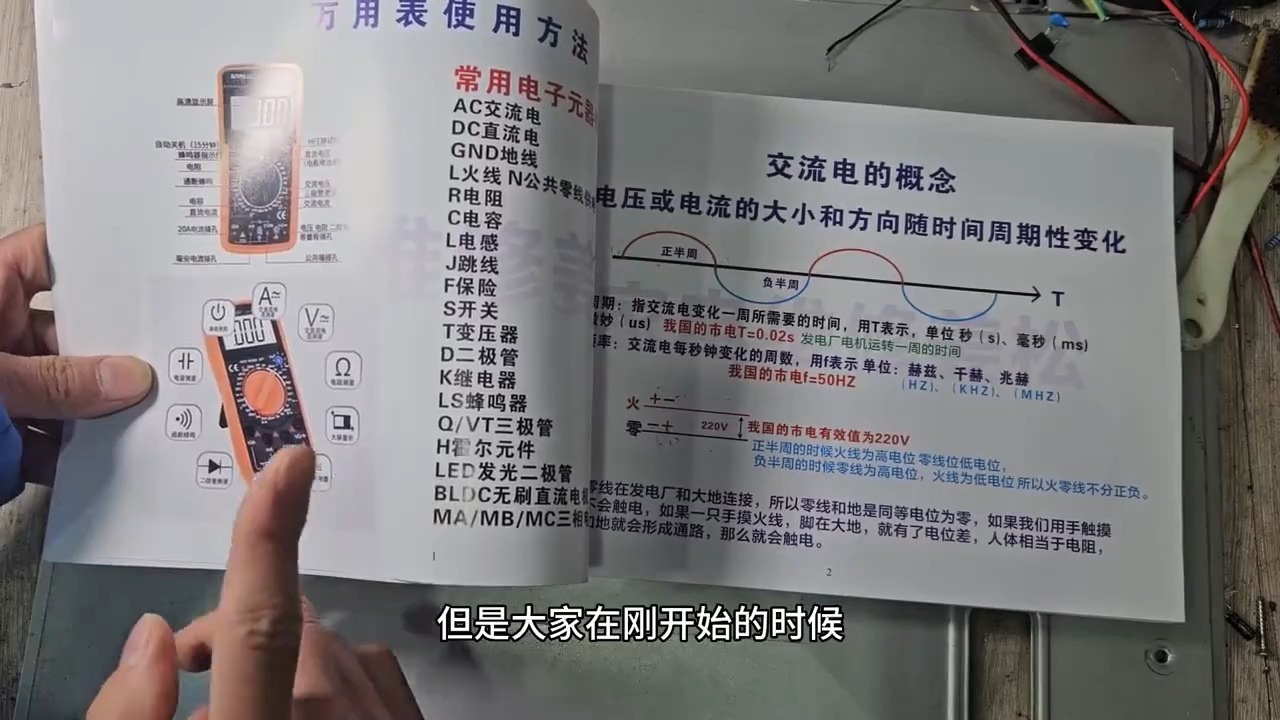 万用表使用方法
高清显示屏
自动关机（15分钟）
蜂鸣器指示灯
电阻
通断蜂鸣
电容
直流电流
20A电流插孔
毫安电流插孔
直流电压
交流电压
交流电流
公共端插孔
A
V
Ω
常用电子元器
AC交流电
DC直流电
GND地线
L火线 N公共零线
R电阻
C电容
L电感
J跳线
F保险
S开关
T变压器
D二极管
K继电器
LS蜂鸣器
Q/VT三极管
H霍尔元件
LED发光二极管
BLDC无刷直流电机
MA/MB/MC三相
1
交流电的概念
电压或电流的大小和方向随时间周期性变化
正半周
负半周
T
周期：指交流电变化一周所需要的时间，用T表示，单位 秒（s）、毫秒（ms）
微妙（us） 我国的市电T=0.02s 发电厂电机运转一周的时间
频率：交流电每秒钟变化的周数，用f表示 单位：赫兹、千赫、兆赫
我国的市电f=50HZ （HZ）、（KHZ）、（MHZ）
火 + −
零 − + 220V 我国的市电有效值为220V
正半周的时候火线为高电位 零线位低电位，
负半周的时候零线为高电位，火线为低电位 所以火零线不分正负。
零线在发电厂和大地连接，所以零线和地是同等电位为零，如果我们用手触摸
不会触电，如果一只手摸火线，脚在大地，就有了电位差，人体相当于电阻，
和地就会形成通路，那么就会触电。
2
但是大家在刚开始的时候